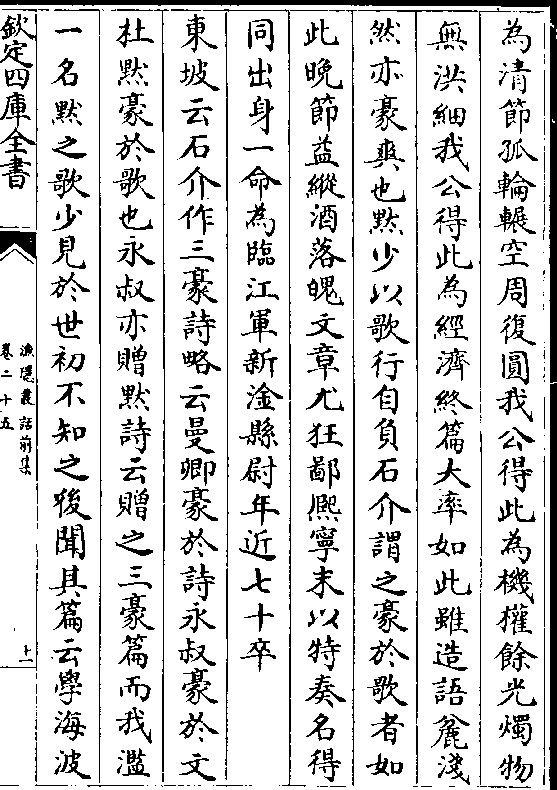 為清節孤輪輾空周復圓我公得此為機權餘光燭物
無洪細我公得此為經濟終篇大率如此雖造語麄淺
然亦豪爽也黙少以歌行自負石介謂之豪於歌者如
此晩節益縱酒落魄文章尤狂鄙熈寧末以特奏名得
同出身一命為臨江軍新淦縣尉年近七十卒
東坡云石介作三豪詩略云曼卿豪於詩永叔豪於文
杜黙豪於歌也永叔亦贈黙詩云贈之三豪篇而我濫
一名黙之歌少見於世初不知之後聞其篇云學海波
欽定四庫全書
漁隱叢話前集
卷二十五
十一